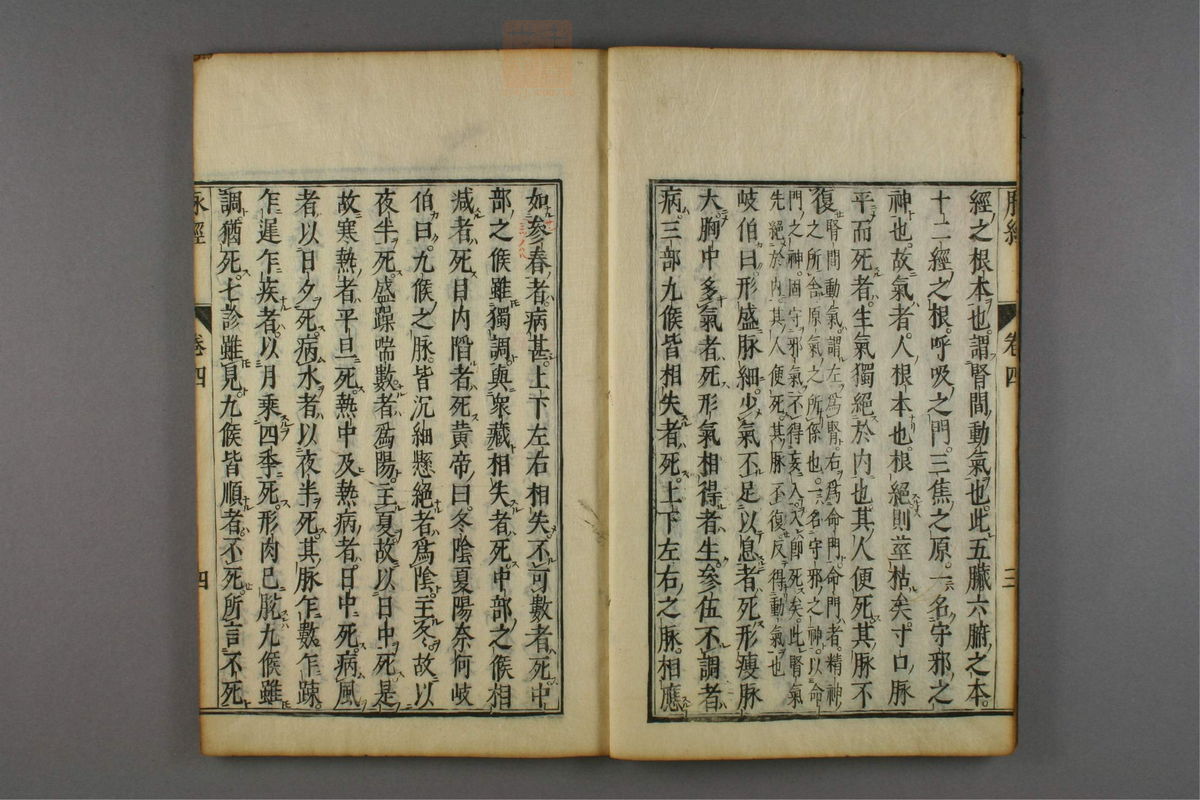 脉經 卷四 三
經之根本也謂腎間動氣也此五臓六腑之本
十二經之根呼吸之門三焦之原一名守邪之
神也故氣者人根本也根絕則莖枯矣寸口脉
平而死者生氣獨絕於內也其人便死其脉不
復
腎間動氣謂左爲腎右爲命門命門者精神
之所舍原氣之所係也一名守邪之神以命
門之神固守邪氣不得妄入入卽死矣此腎氣
先絕於內其人便死其脉不復反得動氣也
岐伯曰形盛脉細少氣不足以息者死形瘦脉
大胸中多氣者死形氣相得者生參伍不調者
病三部九候皆相失者死上下左右之脉相應
如參春者病甚上下左右相失不可數者死中
部之候雖獨調與衆藏相失者死中部之候相
減者死目內陷者死黄帝曰冬陰夏陽奈何岐
伯曰九候之脉皆沉細懸絕者爲陰主冬故以
夜半死盛躁喘數者爲陽主夏故以日中死是
故寒熱者平旦死熱中及熱病者日中死病風
者以日夕死病水者以夜半死其脉乍數乍踈
乍遲乍疾者以月乘四季死形肉已脫九候雖
調猶死七診雖見九候皆順者不死所言不死
脉經 卷四 四